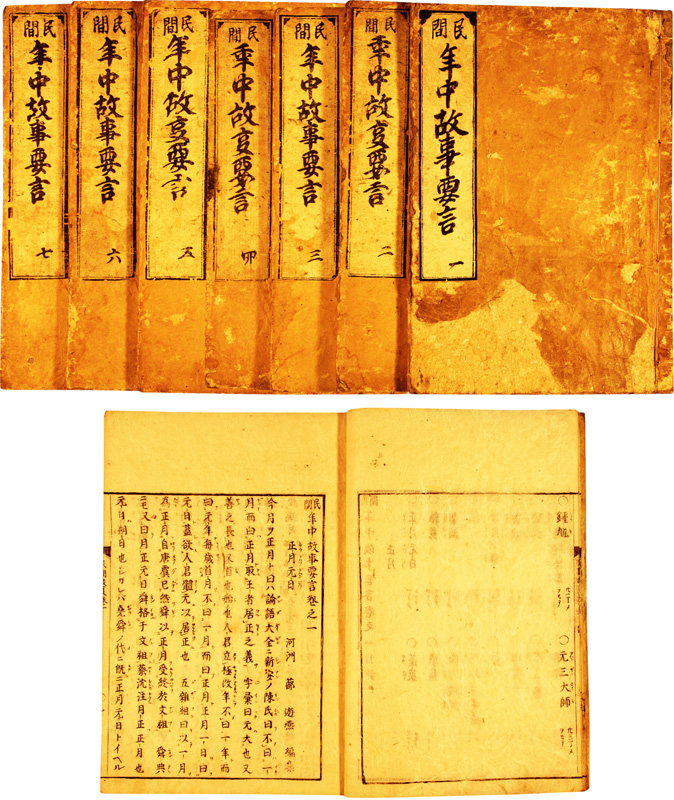 民間 年中故事要言 一
民間 年中故事要言 二
民間 年中故事要言 三
民間 年中故事要言 四
民間 年中故事要言 五
民間 年中故事要言 六
民間 年中故事要言 七
〇鍾馗
〇元三大師
民間年中故事要言卷之一
河洲 蔀 遊燕 編集
正月元日
今月ヲ正月ト曰ハ論語大全ニ新安ノ陳氏曰不曰一
月而曰正月取王者居正之義 字彙曰元大也又
善之長也又首也始也人君立極改年不曰一年而
曰元年每歲首月不曰一月而曰正月正月一日曰
元日蓋欲人君體元以居正也 五雜組曰以一月
為正月自唐虞已然舜以正月受終於文祖 舜典
ニモ又曰月正元日舜格于文祖蔡沈注月正正月也
元日朔日也シカレバ堯舜ノ代ニ既ニ正月元日トイヘル